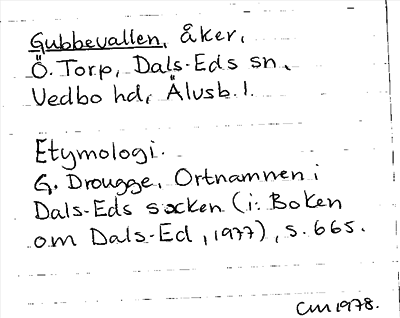 Gubbevallen, åker,
Ö. Torp, Dals-Eds sn,
Vedbo hd, Älvsb. l.
Etymologi.
G. Drougge, Ortnamnen i
Dals-Eds socken (i: Boken
om Dals-Ed, 1977), s. 665.
CM 1978.